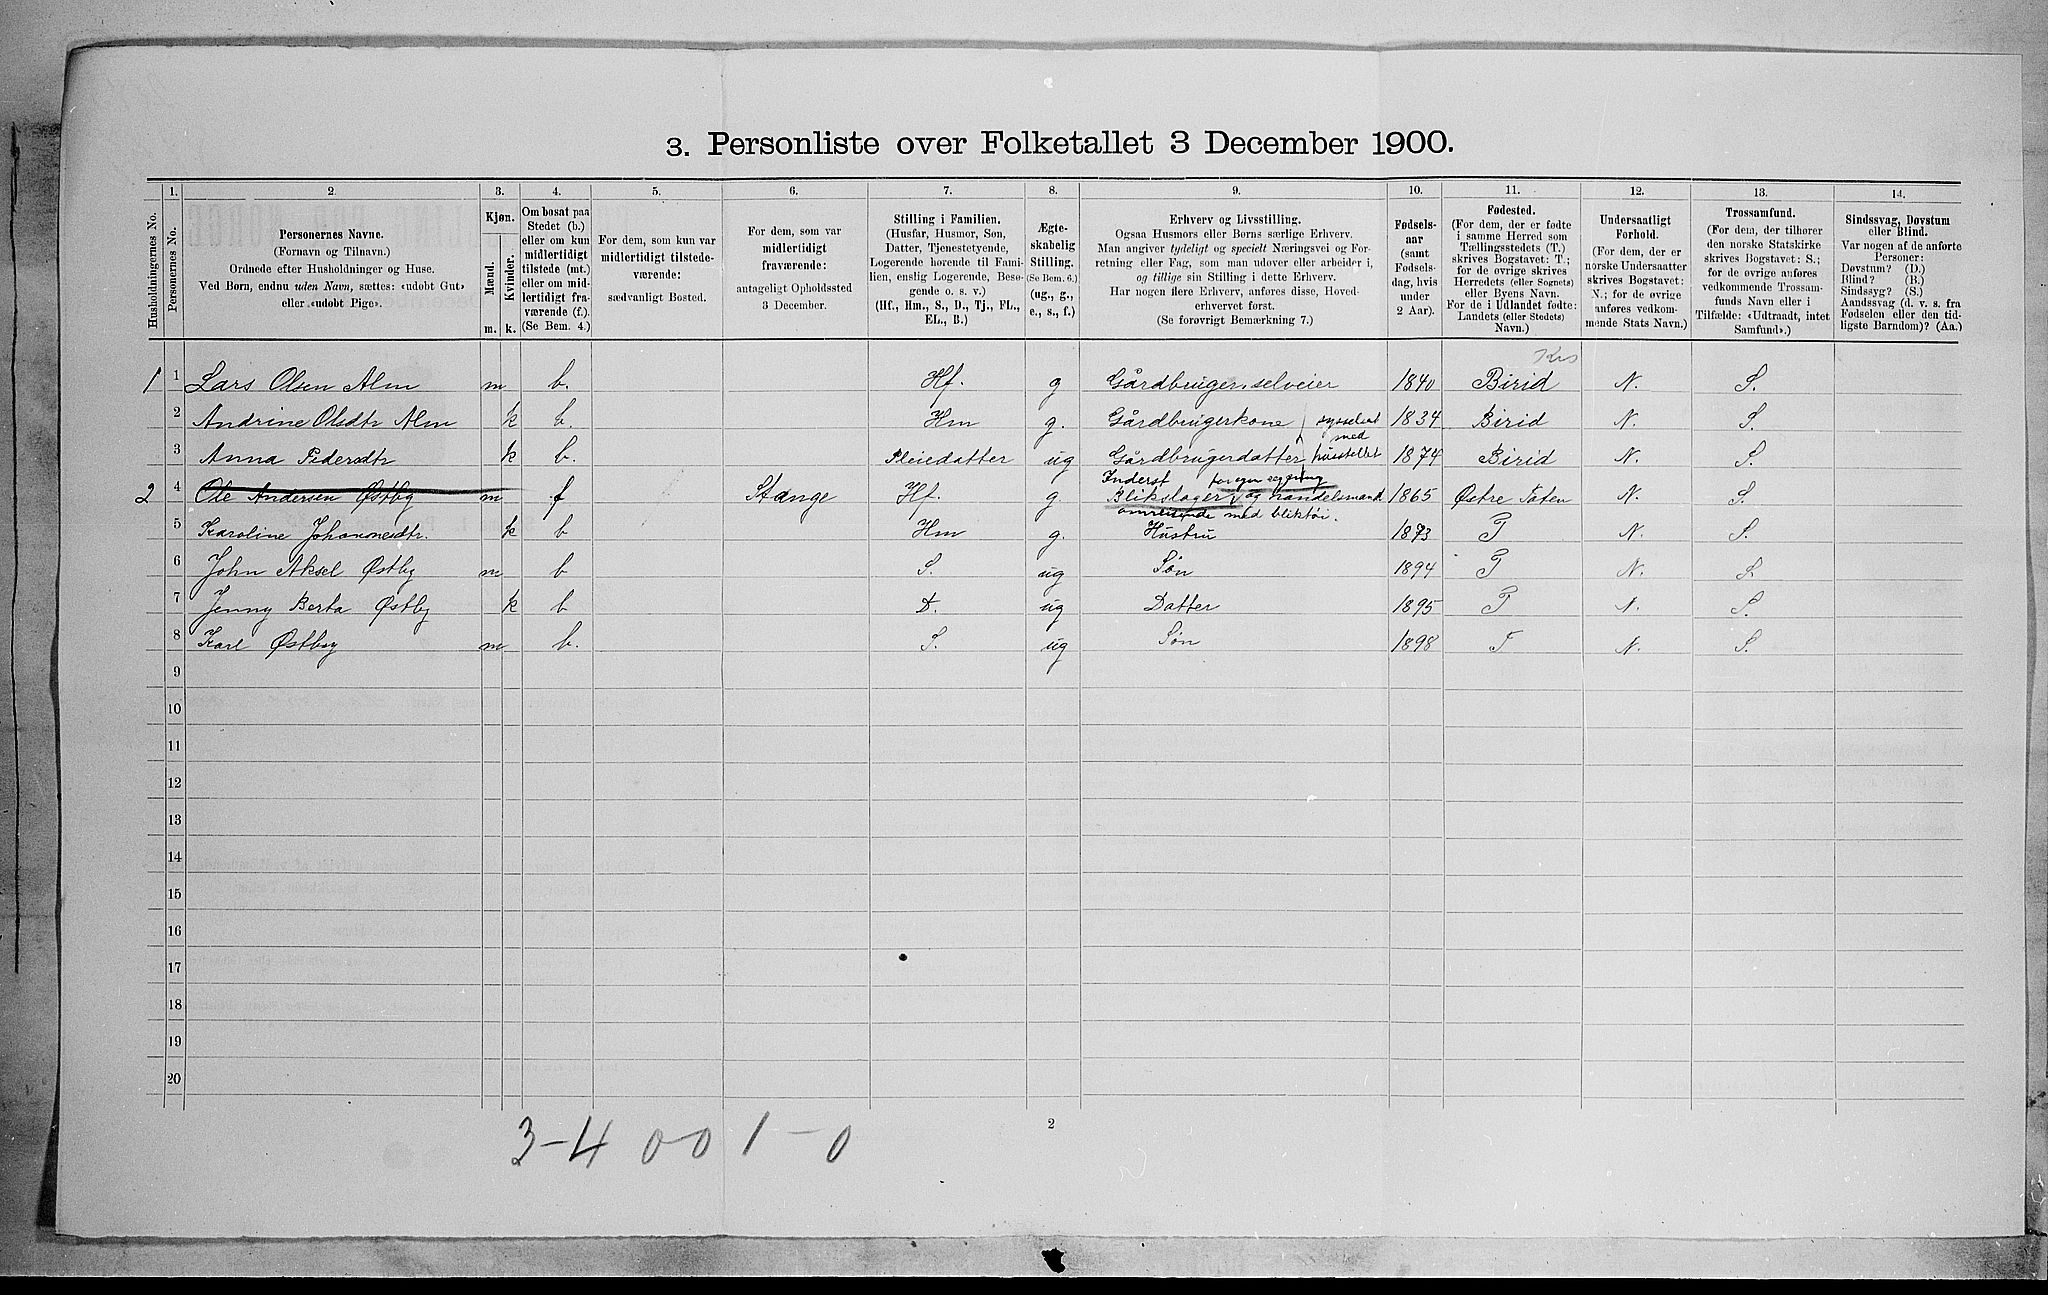 3. Personliste over Folketallet 3 December 1900.
1. 2. 3. 4. 5. 6. 7. 8. 9. 10. 11. 12. 13. 14.
Husholdningernes No.
Personernes No.
Personernes Navne.
(Fornavn og Tilnavn.)
Ordnede efter Husholdninger og Huse.
Ved Børn, endnu uden Navn, sættes: «udøbt Gut»
eller «udøbt Pige».
Kjøn.
Mænd.
Kvinder.
m. k.
Om bosat paa
Stedet (b.)
eller om kun
midlertidigt
tilstede (mt.)
eller om mid-
lertidigt fra-
værende (f.)
(Se Bem. 4.)
For dem, som kun var
midlertidigt tilstede-
værende:
sædvanligt Bosted.
For dem, som var
midlertidigt
fraværende:
antageligt Opholdssted
3 December.
Stilling i Familien.
(Husfar, Husmor, Søn,
Datter, Tjenestetyende,
Logerende hørende til Fami-
lien, enslig Logerende, Besø-
gende o. s. v.)
(Hf., Hm., S., D., Tj., FL.,
EL., B.)
Ægte-
skabelig
Stilling.
(Se Bem. 6.)
(ug., g.,
e., s., f.)
Erhverv og Livsstilling.
Ogsaa Husmors eller Børns særlige Erhverv.
Man angiver tydeligt og specielt Næringsvei og For-
retning eller Fag, som man udøver eller arbeider i,
og tillige sin Stilling i dette Erhverv.
Har nogen flere Erhverv, anføres disse, Hoved-
erhvervet først.
(Se forøvrigt Bemærkning 7.)
Fødsels-
aar
(samt
Fødsels-
dag, hvis
under
2 Aar).
Fødested.
(For dem, der er fødte
i samme Herred som
Tællingsstedets (T.)
skrives Bogstavet: T.;
for de øvrige skrives
Herredets (eller Sognets)
eller Byens Navn.
For de i Udlandet fødte:
Landets (eller Stedets)
Navn.)
Undersaatligt
Forhold.
(For dem, der er
norske Undersaatter
skrives Bogstavet:
N.; for de øvrige
anføres vedkom-
mende Stats Navn.)
Trossamfund.
(For dem, der tilhører
den norske Statskirke
skrives Bogstavet: S.;
for de øvrige anføres
vedkommende Trossam-
funds Navn eller i
Tilfælde: «Udtraadt, intet
Samfund».)
Sindssvag, Døvstum
eller Blind.
Var nogen af de anførte
Personer:
Døvstum? (D.)
Blind? (B.)
Sindssyg? (S.)
Aandssvag (d. v. s. fra
Fødselen eller den tid-
ligste Barndom)? (Aa.)
1 1 Lars Olsen Alm m b. Hf. g Gårdbruger, selveier 1840 Birid N. S.
2 Andrine Olsdtr Alm k b. Hm g. Gårdbrugerkone sysselsat 1834 Birid N. S.
med
3 Anna Pedersdtr k b. Pleiedatter ug Gårdbrugerdatter husstellet 1874 Birid N. S.
Inderst for egen regning
2 4 Ole Andersen Østby m f Stange Hf. g Blikslager og handelsmand 1865 Østre Toten N. S.
omreisende med bliktøi.
5 Karoline Johannesdtr. k b Hm g. Hustru 1873 T N. S.
6 John Aksel Østby m b S. ug Søn 1894 T N. S.
7 Jenny Berta Østby k b D. ug Datter 1895 T N. S.
8 Karl Østby m b. S. ug Søn 1898 T N. S.
9
10
11
12
13
14
15
16
17
18
19
20
2
3-4 0-0 1-0